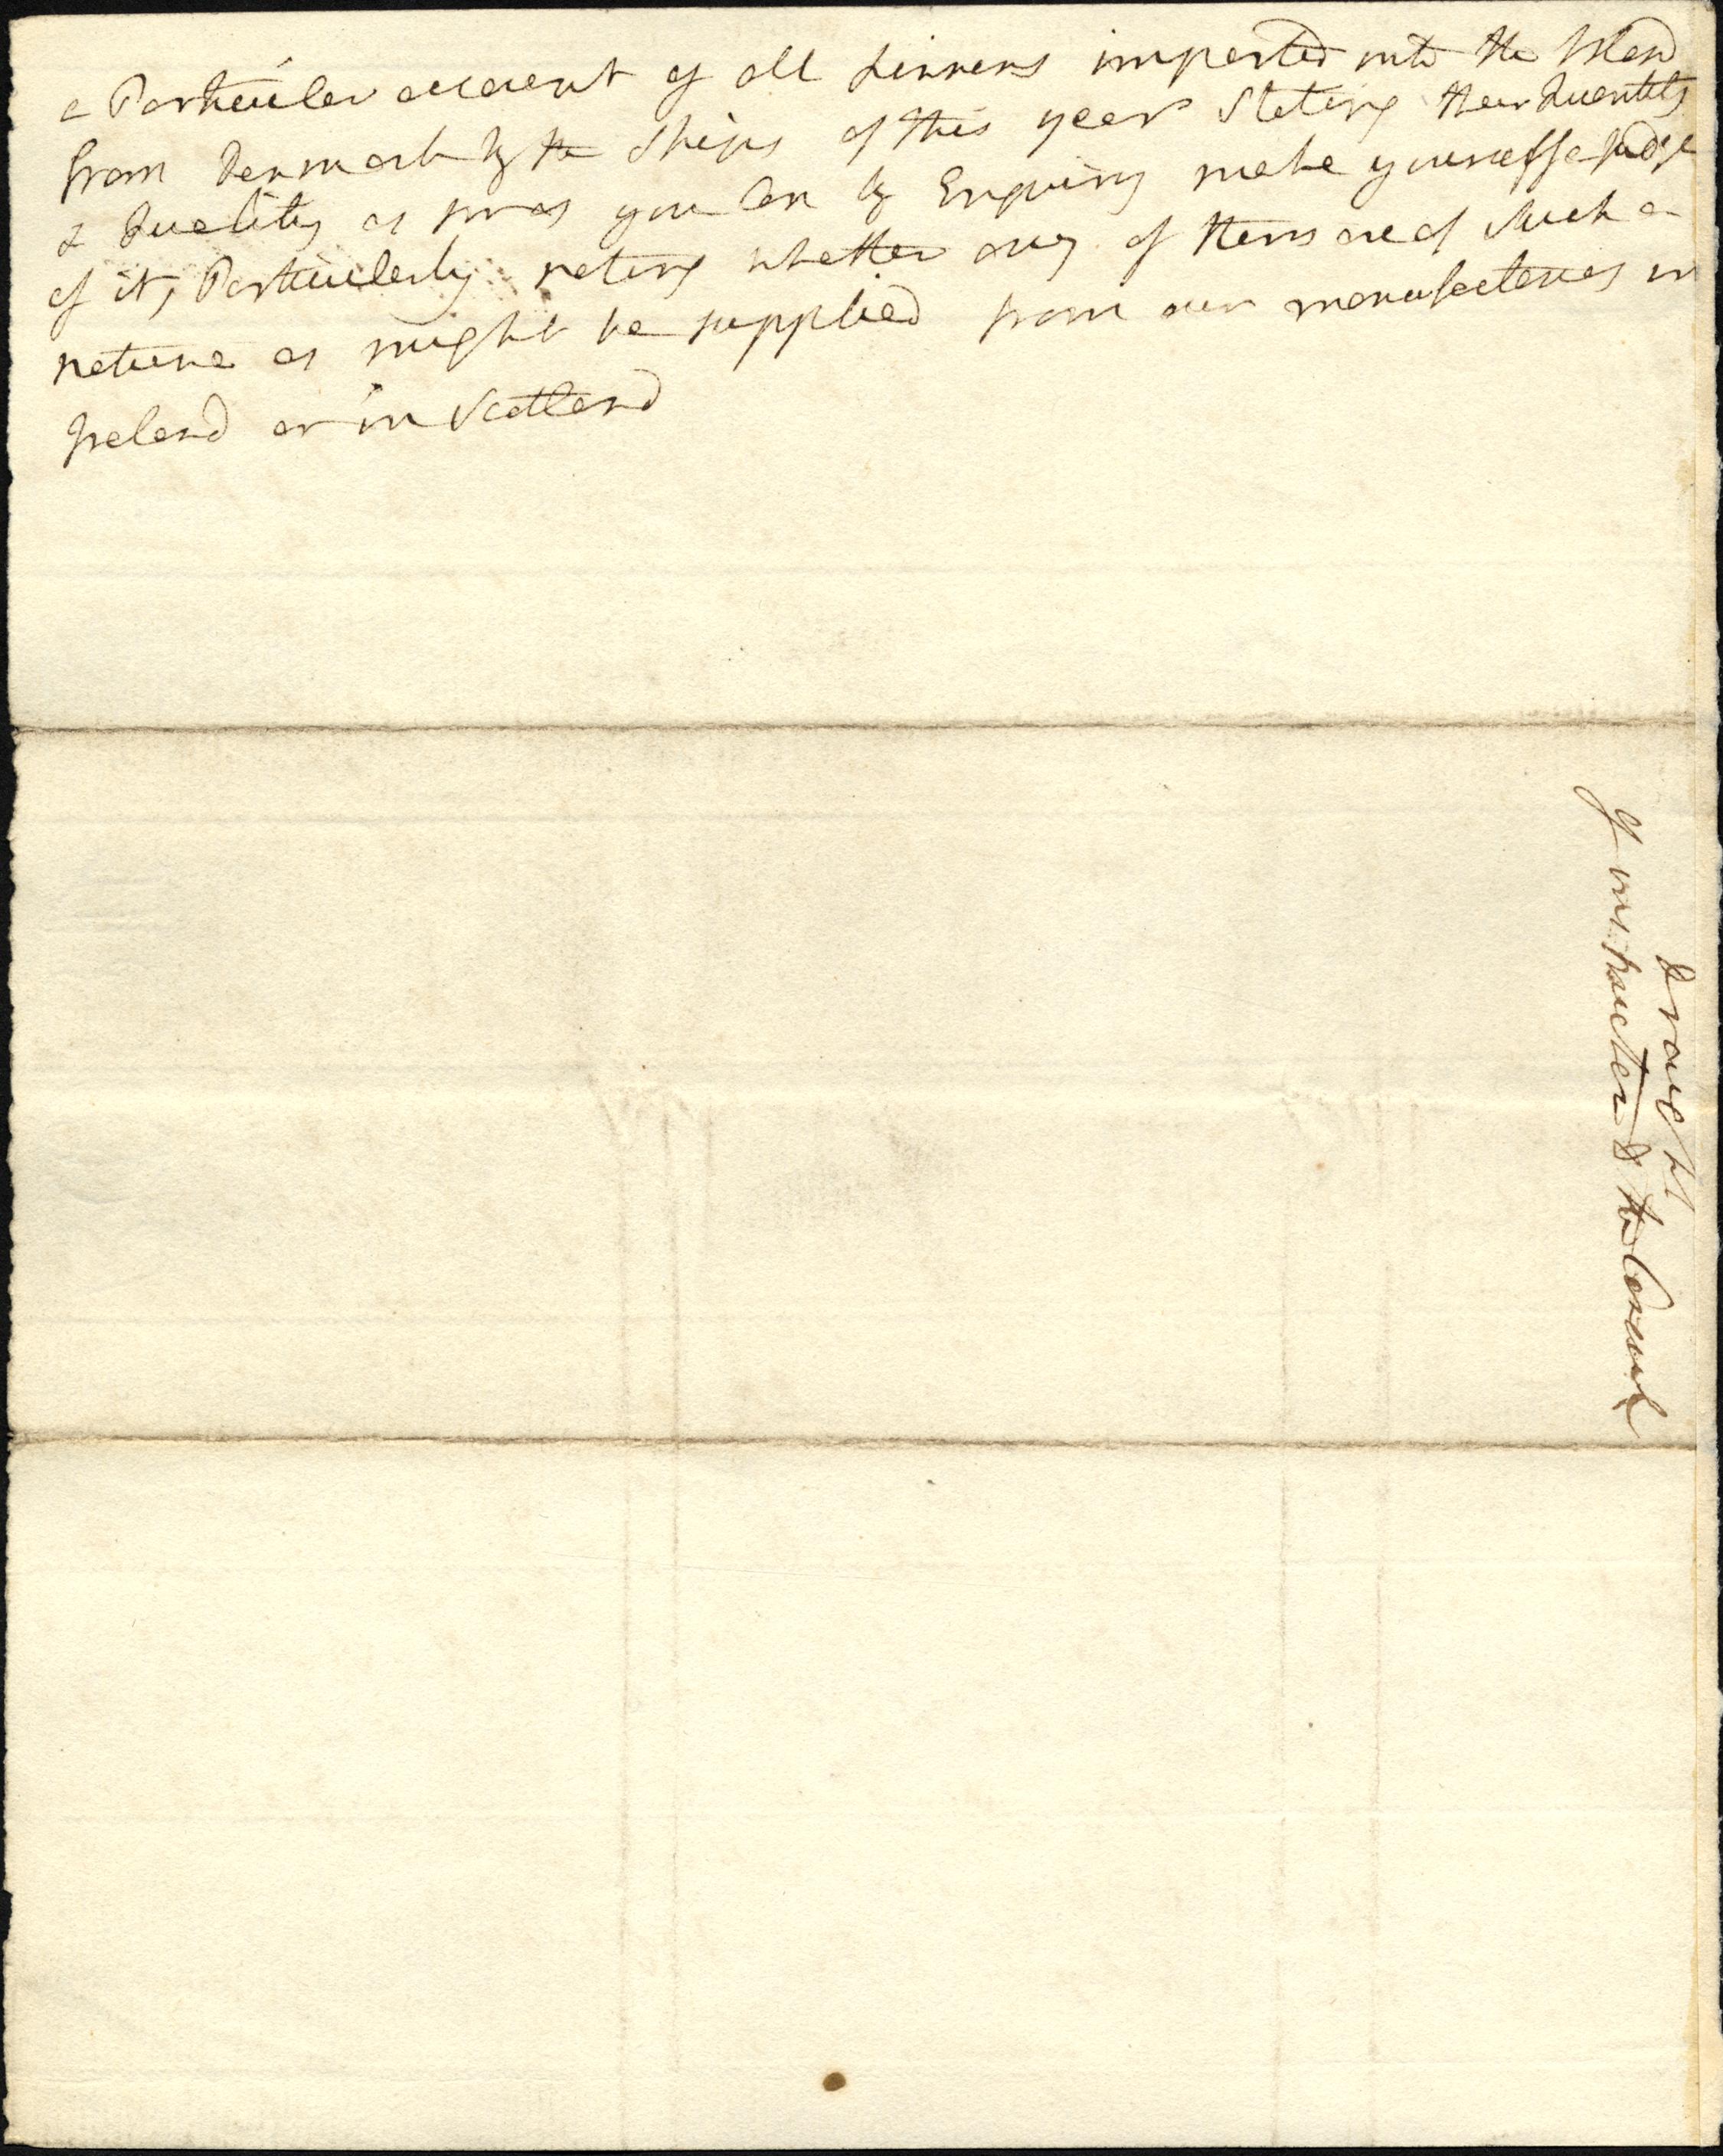 a Particular account of all Linnens imported into the Island
from Denmark by the Ships of this year Stating their Quantity
& Quality as far as you Can by Enquiry make yourself a judge
of it, Particularly noting whether any of them are of Such a
nature as might be supplied from our manufactories in
Ireland or in Scotland
Draught
of instruction to the Consul